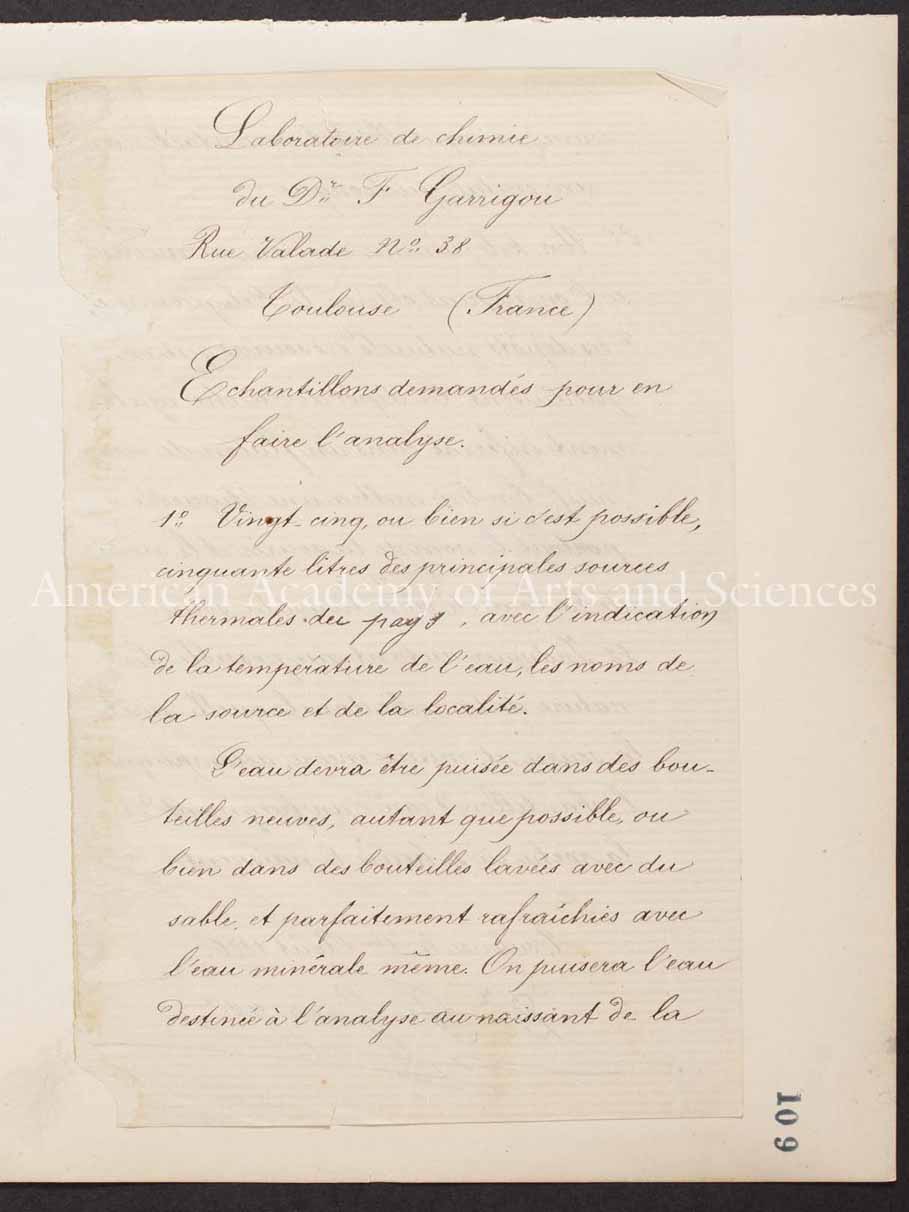 Laboratoire de chimie
du Dr. F Garrigou
Rue Valade No. 38
Toulouse (France)
Echantillons demandés pour en
faire l'analyse.
1o. Vingt-cinq, ou bien si c'est possible,
cinquante litres des principales sources
thermales du pays, avec l'indication
de la température de l'eau, les noms de
la source et de la localité.
L'eau devra être puisée dans des bou-
teilles neuves, autant que possible, ou
bien dans des bouteilles lavées avec du
sable, et parfaitement rafraîchies avec
l'eau minérale même. On puisera l'eau
destinée à l'analyse au naissant de la
American Academy of Arts and Sciences
109